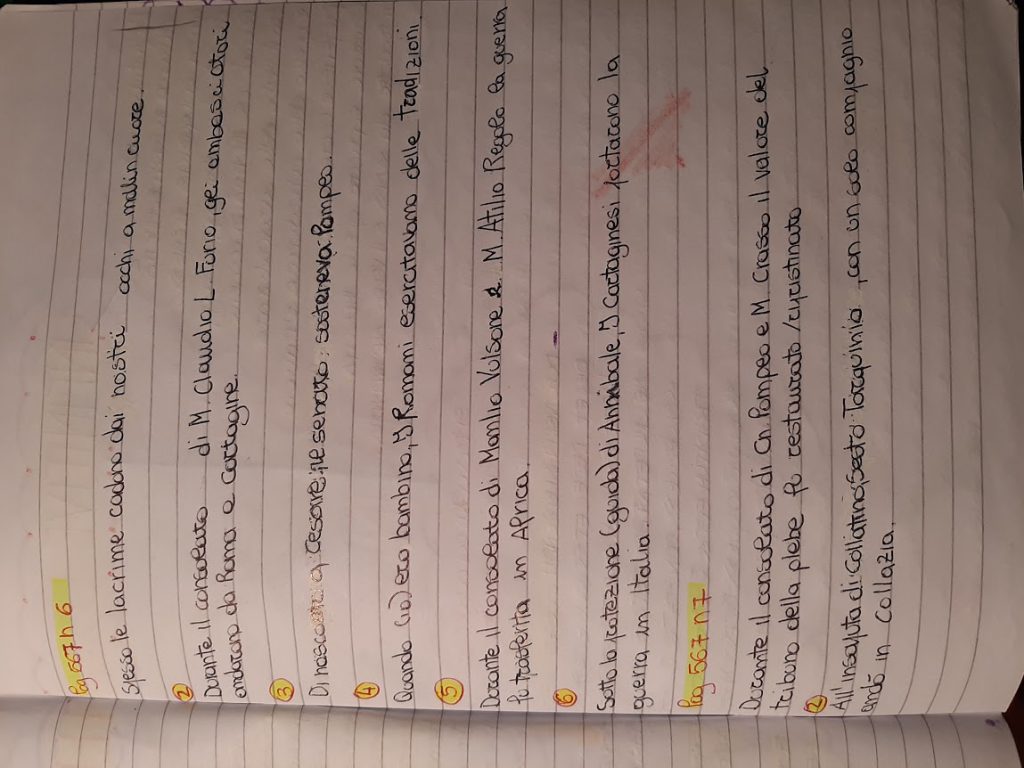 Pag 567 n 6
Spesso le lacrime cadono dai nostri occhi a malincuore.
②
Durante il consolato di M. Claudio L. Furio, gli ambasciatori
andarono da Roma a Cartagine.
③
Di nascosto a Cesare, il senato sosteneva Pompeo.
④
Quando (io) ero bambino, I Romani esercitavano delle tradizioni.
⑤
Durante il consolato di Manlio Vulsone e M Atilio Regolo la guerra
fu trasferita in Africa.
⑥
Sotto la protezione (guida) di Annibale, I Cartaginesi portarono la
guerra in Italia.
Pag 567 n 7
Durante il consolato di Cn Pompeo e M. Crasso il valore del
tribuno della plebe fu restaurato / ripristinato
②
All'insaputa di Collatino, Sesto Tarquinio, con un solo compagno
andò in Collazia.